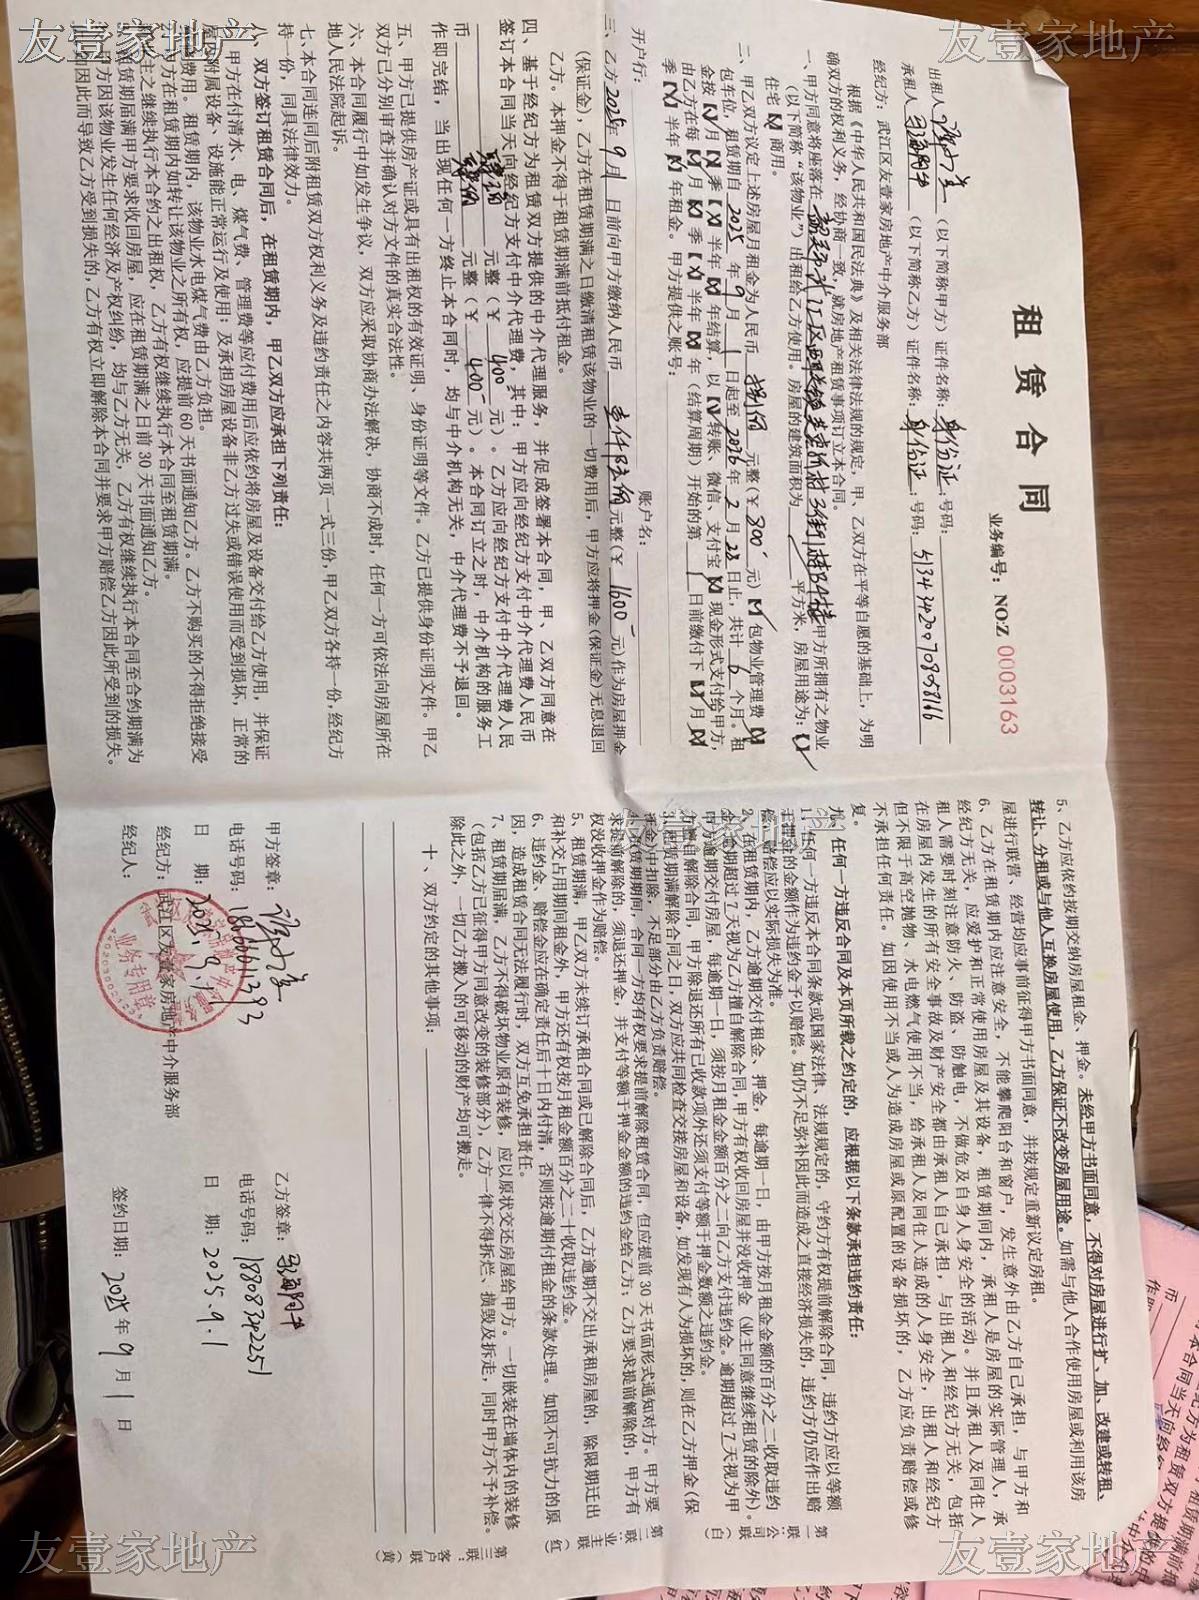 友壹家地产
友壹家地产
租赁合同
业务编号：NO:Z 0003163
出租人 （以下简称甲方）证件名称：身份证：号码：
承租人 （以下简称乙方）证件名称：身份证：号码：
经纪方：武江区友壹家房地产中介服务部
根据《中华人民共和国民法典》及相关法律法规的规定，甲、乙双方在平等自愿的基础上，为明
确双方的权利义务，经协商一致，就房地产租赁事项订立本合同。
一、甲方同意将座落在 甲方所拥有之物业
（以下简称“该物业”）出租给乙方使用。房屋的建筑面积为 平方米，房屋用途为：
住宅 商用。
二、甲乙双方议定上述房屋月租金为人民币 捌佰 元整（￥800 元） 包物业管理费
包车位，租赁期自 2025 年 9 月 1 日起至 2026 年 2 月 28 日止，共计 6 个月。租
金按 月 季 半年 年结算，以 转账、微信、支付宝 现金形式支付给甲方，
由乙方在每 月 季 半年 年（结算周期）开始的第 1 日前缴付下 月
季 半年 年租金。甲方提供之账号：
开户行： 账户名：
三、乙方2025年 9月 日前向甲方缴纳人民币 壹仟陆佰 元整（￥ 1600 元）作为房屋押金
（保证金），乙方在租赁期满之日缴清租赁该物业的一切费用后，甲方应将押金（保证金）无息退回
乙方。本押金不得于租赁期满前抵付租金。
四、基于经纪方为租赁双方提供的中介代理服务，并促成签署本合同，甲、乙双方同意在
签订本合同当天向经纪方支付中介代理费，其中：甲方应向经纪方支付中介代理费人民币
肆佰 元整（￥ 400 元）。乙方应向经纪方支付中介代理费人民
币 肆佰 元整（￥ 400 元）。本合同订立之时，中介机构的服务工
作即完结，当出现任何一方终止本合同时，均与中介机构无关，中介代理费不予退回。
五、甲方已提供房产证或具有出租权的有效证明、身份证明等文件。乙方已提供身份证明文件。甲乙
双方已分别审查并确认对方文件的真实合法性。
六、本合同履行中如发生争议，双方应采取协商办法解决，协商不成时，任何一方可依法向房屋所在
地人民法院起诉。
七、本合同连同后附租赁双方权利义务及违约责任之内容共两页一式三份，甲乙双方各持一份，经纪方
持一份，同具法律效力。
八、双方签订租赁合同后，在租赁期内，甲乙双方应承担下列责任：
甲方在付清水、电、煤气费、管理费等应付费用后应依约将房屋及设备交付给乙方使用，并保证
附属设备、设施能正常运行及使用；及承担房屋设备非乙方过失或错误使用而受到损坏，正常的
费用。租赁期内，该物业水电煤气费由乙方负担。
方在租赁期内如转让该物业之所有权，应提前 60 天书面通知乙方。乙方不购买的不得拒绝接受
主之继续执行本合约之出租权，乙方有权继续执行本合同至租赁期满。
租赁期届满甲方要求收回房屋，应在租赁期满之日前 30 天书面通知乙方。
甲方因该物业发生任何经济及产权纠纷，均与乙方无关，乙方有权继续执行本合同至合约期满为
如因此而导致乙方受到损失的，乙方有权立即解除本合同并要求甲方赔偿乙方因此所受到的损失。
5、乙方应依约按期交纳房屋租金、押金。未经甲方书面同意，不得对房屋进行扩、加、改建或转租、
转让、分租或与他人互换房屋使用，乙方保证不改变房屋用途。如需与他人合作使用房屋或利用该房
屋进行联营、经营均应事前征得甲方书面同意，并按规定重新议定房租。
6、乙方在租赁期内应注意安全，不能攀爬阳台和窗户，发生意外由乙方自己承担，与甲方和
经纪方无关，应爱护和正常使用房屋及其设备，租赁期间内，承租人是房屋的实际管理人，承
租人需要时刻注意防火、防盗、防触电，不做危及自身人身安全的活动。并且承租人及同住人
在房屋内发生的所有安全事故及财产安全都由承租人自己承担，与出租人和经纪方无关，包括
但不限于高空抛物、水电燃气使用不当，给承租人及同住人造成的人身安全，出租人和经纪方
不承担任何责任。如因使用不当或人为造成房屋或原配置的设备损坏的，乙方应负责赔偿或修
复。
九、任何一方违反合同及本页所载之约定的，应根据以下条款承担违约责任：
1、任何一方违反本合同条款或国家法律、法规规定的，守约方有权提前解除合同，违约方应以等额
于押金的金额作为违约金予以赔偿。如仍不足弥补因此而造成之直接经济损失的，违约方仍应作出赔
偿，赔偿应以实际损失为准。
2、在租赁期内，乙方逾期交付租金、押金，每逾期一日，由甲方按月租金金额的百分之二收取违约
金，逾期超过 7 天视为乙方擅自解除合同，甲方有权收回房屋并没收押金（业主同意继续租赁的除外）。
甲方逾期交付房屋，每逾期一日，须按月租金金额百分之二向乙方支付违约金。逾期超过 7 天视为甲
方擅自解除合同，甲方除退还所有已收款项外还须支付等额于押金数额之违约金。
3、租赁期满解除合同之日，双方应共同检查交接房屋和设备，如发现有人为损坏的，则在乙方押金（保
证金）中扣除，不足部分由乙方负责赔偿。
租赁期期间，合同一方均有权要求提前解除租赁合同，但应提前 30 天书面形式通知对方。甲方要
求提前解除的，须退还押金，并支付等额于押金金额的违约金给乙方；乙方要求提前解除的，甲方有
权没收押金作为赔偿。
5、租赁期满，甲乙双方未续订承租合同或已解除合同后，乙方逾期不交出承租房屋的，除限期迁出
和补交占用期间租金外，甲方还有权按月租金额百分之二十收取违约金。
6、违约金、赔偿金应在确定责任后十日内付清，否则按逾期付租金的条款处理。如因不可抗力的原
因，造成租赁合同无法履行时，双方互免承担责任。
7、租赁期届满，乙方不得破坏物业原有装修，应以原状交还房屋给甲方。一切嵌装在墙体内的装修
（包括乙方已征得甲方同意改变的装修部分），乙方一律不得拆拦、损毁及拆走，同时甲方不予补偿。
除此之外，一切乙方搬入的可移动的财产均可搬走。
十、双方约定的其他事项：
甲方签章： 乙方签章：
电话号码： 电话号码：18808342251
日 期：2025.9.1 日 期：2025.9.1
经纪方：武江区友壹家房地产中介服务部
经纪人： 签约日期：2025 年 9 月 1 日
业务专用章
第一联：公司（白）
第二联：业主（红）
第三联：客户（黄）
友壹家地产
友壹家地产
友壹家地产